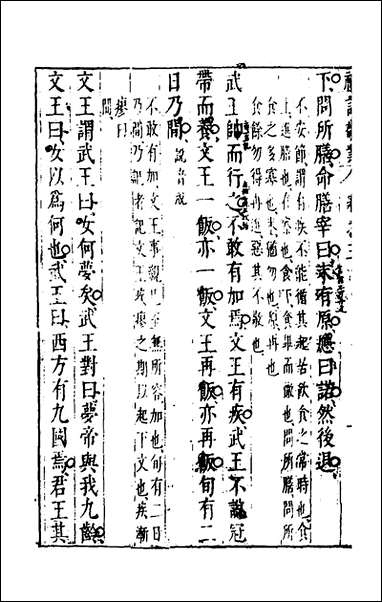 下問所膳命膳宰曰末有原應曰諾然後退
不安節謂有疾不能循其起居飲食之常時也食
上進膳也在察也食下食畢而徹也問所膳問所
食之多寡也末猶勿也原再也
食餘勿得再進惡其不敬也
武王帥而行之不敢有加焉文王有疾武王不說冠
帶而養文王一飯亦一飯文王再飯亦再飯旬有二
日乃間 說音脫
不敢有加文王事親已至無所容加也旬有二日
乃間乃間者記文王疾瘳之期以起下文也疾漸
瘳曰
間
文王謂武王曰女何夢矣武王對曰夢帝與我九齡
文王曰女以為何也武王曰西方有九國焉君王其